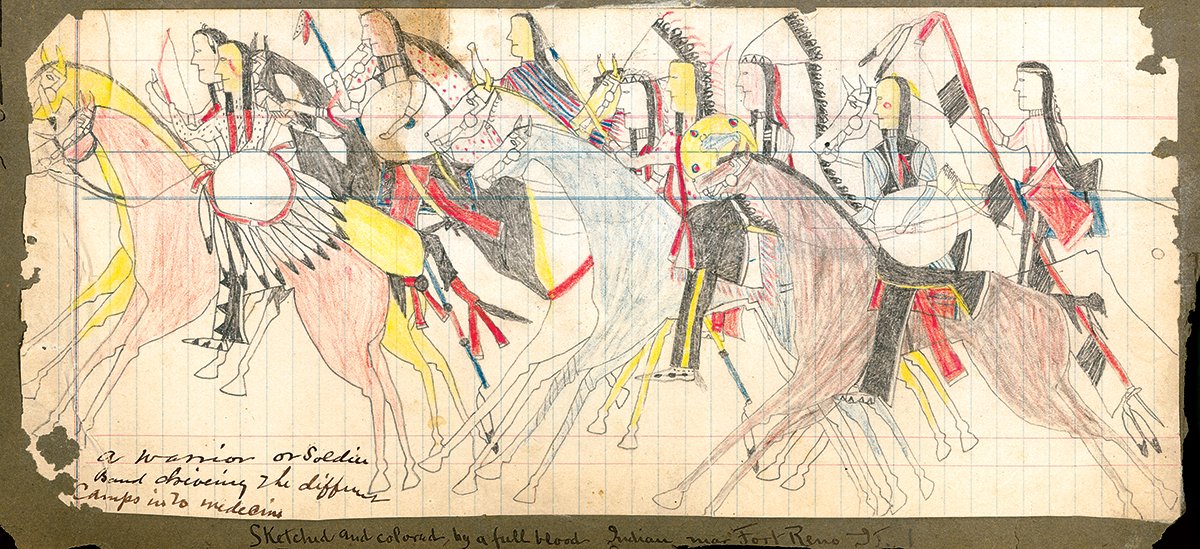 a warrior or Soldier
Band driveing The different
Camps in to medecine
Sketched and colored, by a full blood Indian near Fort Reno I.T.